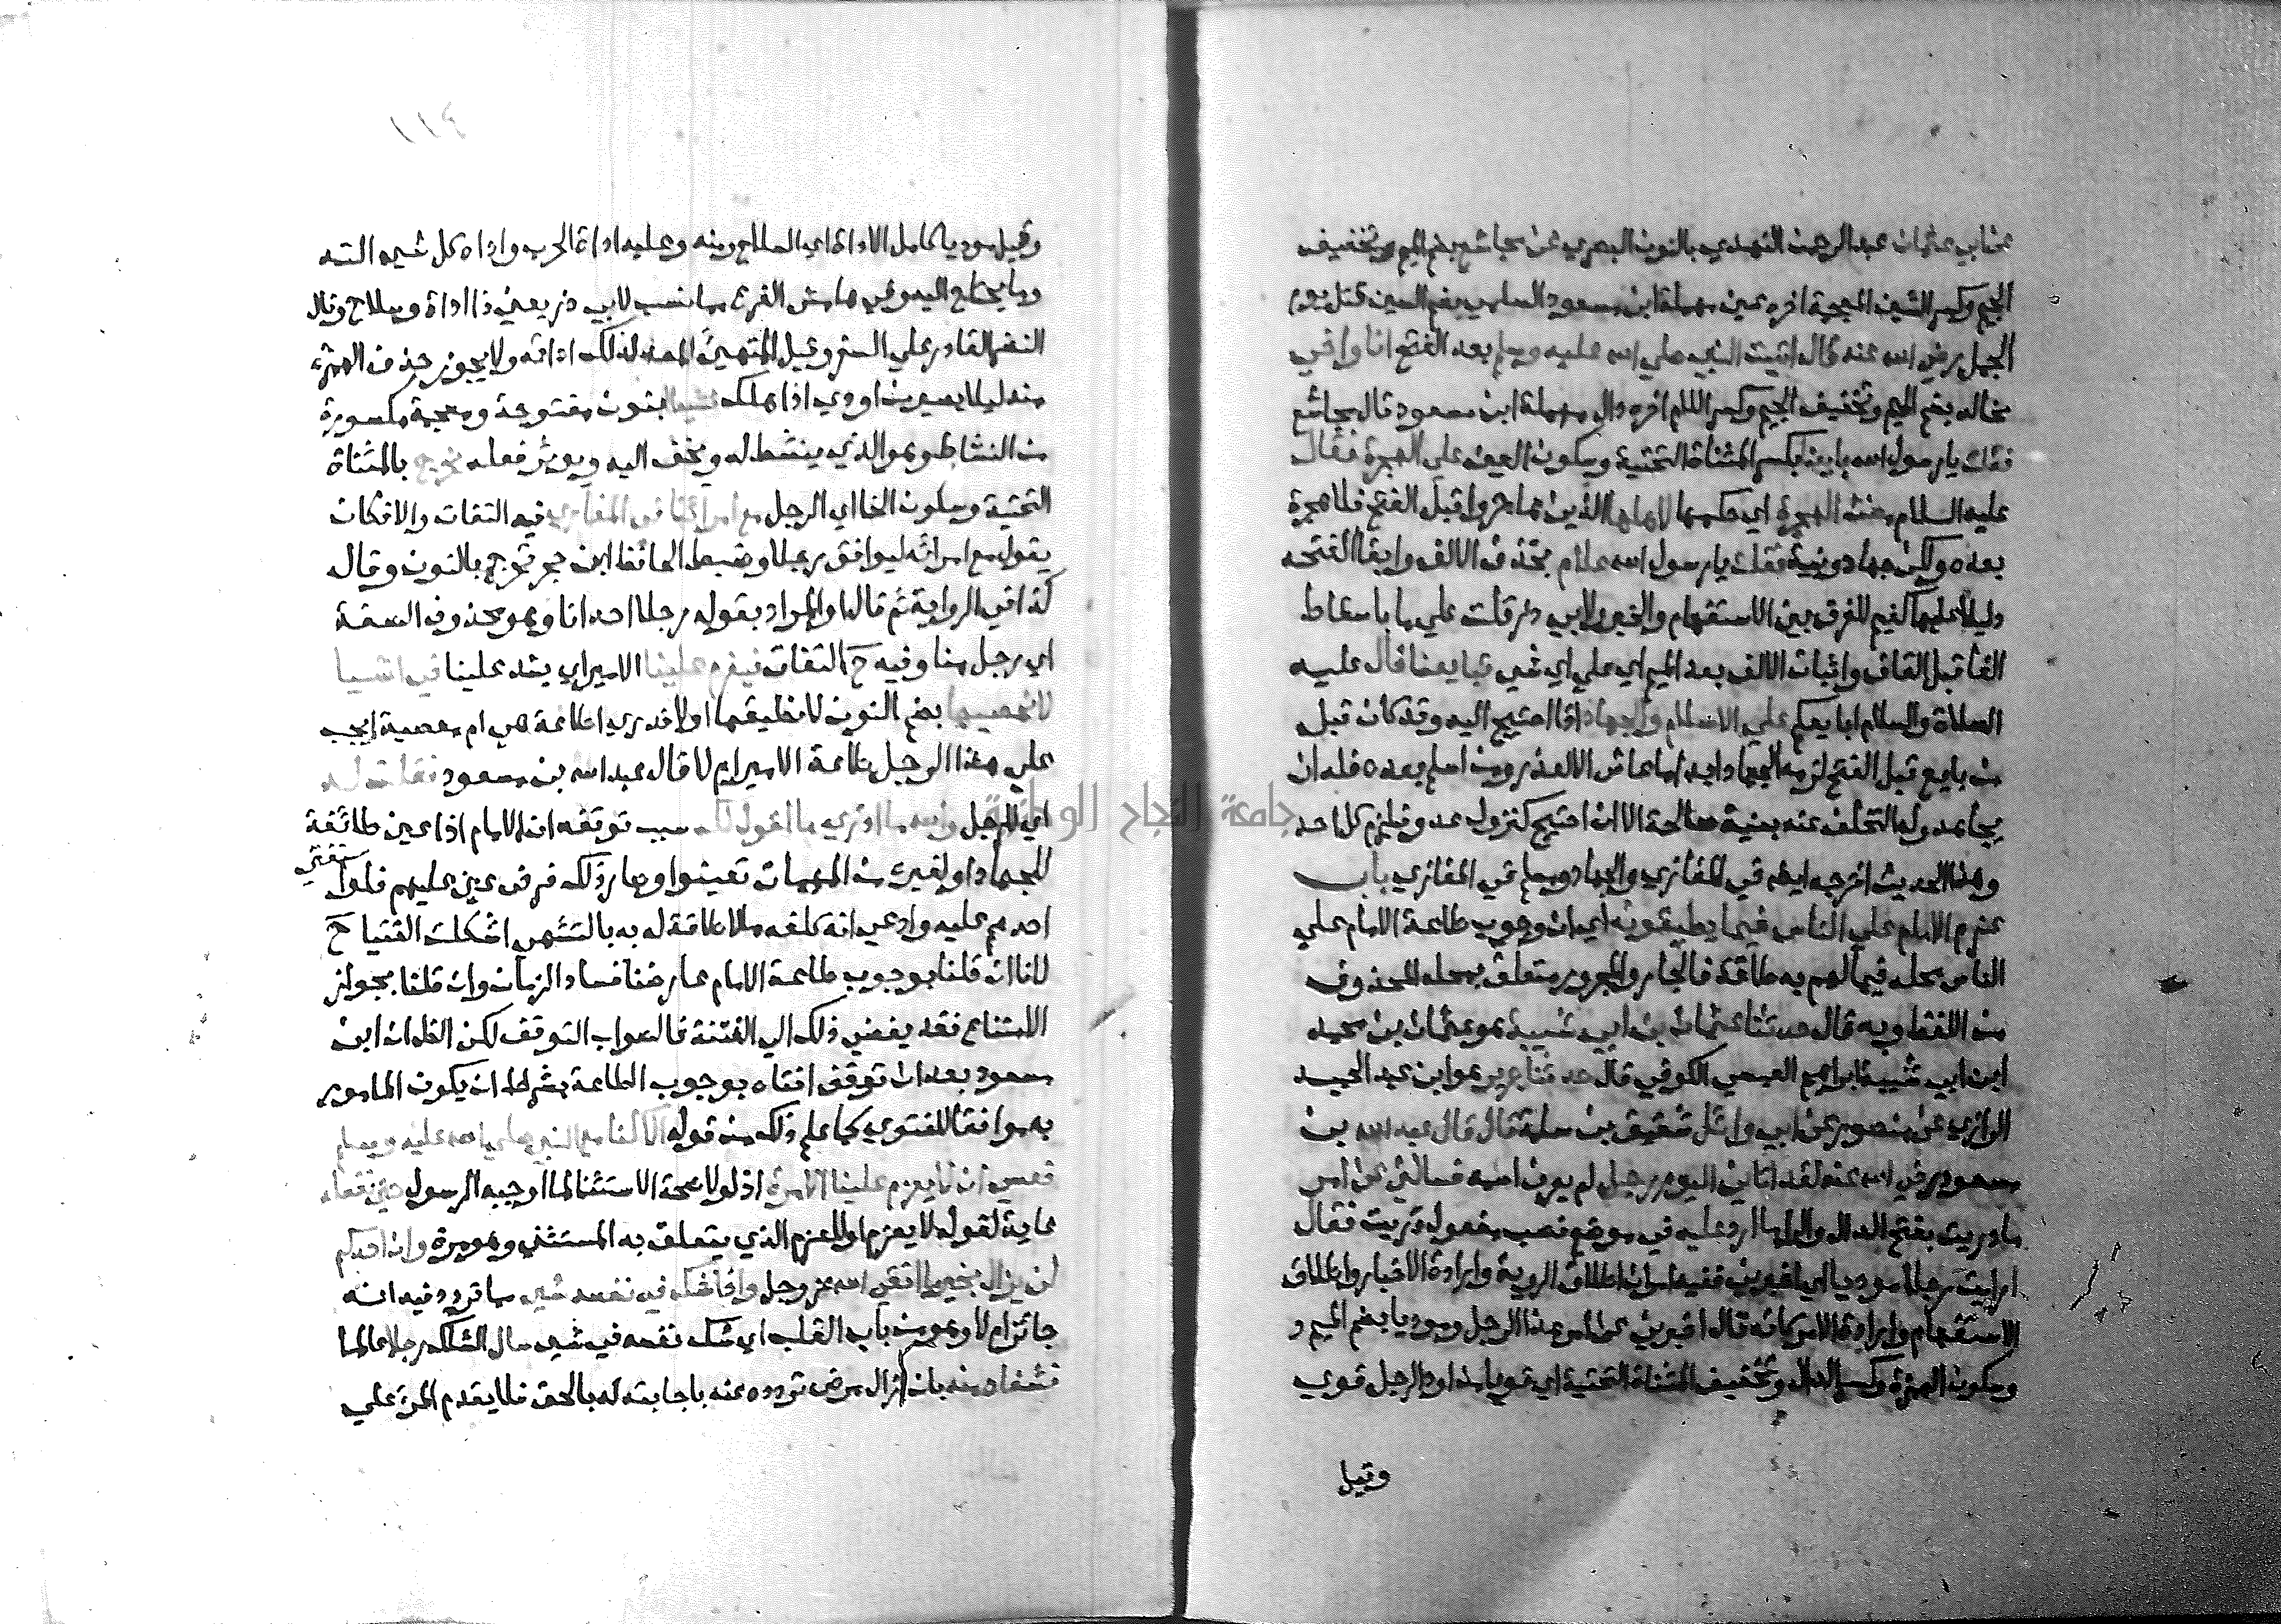 عن ابي عثمان عبد الرحمن النهدي بالنون البصري عن مجاشع بضم الميم وتخفيف
الجيم وكسر الشين المعجمة اخره عين مهملة ابن مسعود السلمي بضم السين قتل يوم
الجمل رضي الله عنه قال اتيت النبي صلي الله عليه وسلم بعد الفتح انا واخي
مجالد بضم الميم وتخفيف الجيم وكسر اللام اخره دال مهملة ابن مسعود قال مجاشع
فقلت يا رسول الله بايعنا بكسر المثناة التحتية وسكون العين علي الهجرة فقال
عليه السلام مضت الهجرة اي حكمها لاهلها الذين هاجروا قبل الفتح فلا هجرة
بعده ولكن جهاد ونية فقلت يا رسول الله علام بحذف الالف وابقا الفتحه
دليلا عليها كفيم للفرق بين الاستفهام والخبر ولابي ذر قلت علي ما باسقاط
الفا قبل القاف واثبات الالف بعد الميم اي علي اي شي تبايعنا قال عليه
الصلاة والسلام ابايعكم علي الاسلام والجهاد اذا احتيج اليه وقد كان قبل
من بايع قبل الفتح لزمه الجهاد ابدا ما عاش الا لعذر ومن اسلم بعده فله ان
يجاهد وله التخلف عنه بنية صالحة الا ان احتيج كنزول عدو فيلزم كل احد
وهذا الحديث اخرجه ايضا في المغازي والجهاد ومسلم في المغازي باب
عزم الامام علي الناس فيما يطيقونه اي ان وجوب طاعة الامام علي
الناس محله فيما لهم به طاقة فالجار والمجرور متعلق بمحله المحذوف
من اللفظ وبه قال حدثنا عثمان بن ابي شيبة هو عثمان بن محمد
ابن ابي شيبة ابراهيم العبسي الكوفي قال حدثنا جرير هو ابن عبد الحميد
الرازي عن منصور عن ابي وائل شقيق بن سلمة قال قال عبد الله بن
مسعود رضي الله عنه لقد اتاني اليوم رجل لم يعرف اسمه فسالني عن امر
ما دريت بفتح الدال والرا ما ارد عليه في موضع نصب مفعول دريت فقال
ارايت رجلا موديا اي اخبرني ففيه امران اطلاق الروية وارادة الاخبار واطلاق
الاستفهام وارادة الامر كانه قال اخبرني عن امر هذا الرجل وموديا بضم الميم و
وسكون الهمزة وكسر الدال وتخفيف المثناة التحتية اي قويا من اودي الرجل قوي
وقيل
وقيل موديا كامل الاداة اي السلاح ومنه وعليه اداة الحرب واداة كل شي الته
وما يحتاج اليه وفي هامش الفرع مما نسب لابي ذر يعني ذا اداة وسلاح وقال
النضر القادر علي السفر وقيل المتهيئ المعد لذلك اداته ولا يجوز حذف الهمزة
منه ليلا يصير من اودي اذا هلك نشيطا بنون مفتوحة ومعجمة مكسورة
من النشاط وهو الذي ينشط له ويخف اليه ويوثر فعله يخرج بالمثناة
التحتية وسكون الخا اي الرجل مع امرائنا في المغازي فيه التفات والا فكان
يقول مع امرائه ليوافق رجلا وضبط الحافظ ابن حجر نخرج بالنون وقال
كذا في الرواية ثم قال او المراد بقوله رجلا احدنا او هو محذوف الصفة
اي رجل منا وفيه ح التفات فيعزم علينا الامير اي يشد علينا في اشيا
لا نحصيها بضم النون لا نطيقها او لا ندري اطاعة هي ام معصية ايجب
علي هذا الرجل طاعة الامير ام لا قال عبد الله بن مسعود فقلت له
اي للرجل والله ما ادري ما اقول لك سبب توقفه ان الامام اذا عين طائفة
للجهاد او لغيره من المهمات تعينوا وصار ذلك فرض عين عليهم فلو استفتي
احدهم عليه وادعي انه كلفه ما لا طاقة له به بالتشهي اشكلت الفتيا ح
لانا ان قلنا بوجوب طاعة الامام عارضنا فساد الزمان وان قلنا بجواز
الامتناع فقد يفضي ذلك الي الفتنة فالصواب التوقف لكن الظاهر ان ابن
مسعود بعد ان توقف افتاه بوجوب الطاعة بشرط ان يكون المامور
به موافقا للتقوي كما علم ذلك من قوله الا انا كنا مع النبي صلي الله عليه وسلم
فعسي ان لا يعزم علينا الا مرة اذ لولا صحة الاستثنا لما اوجبه الرسول حتي نفعله
غاية لقوله لا يعزم او للعزم الذي يتعلق به المستثني وهو مرة وان احدكم
لن يزال بخير ما اتقي الله عز وجل واذا شك في نفسه شي مما تردد فيه انه
جائز ام لا وهو من باب القلب اي شك نفسه في شي سال الشاك رجلا عالما
فشفاه منه بان ازال مرض تردده عنه باجابته له بالحق فلا يقدم المرء علي
جامعة النجاح الوطنية